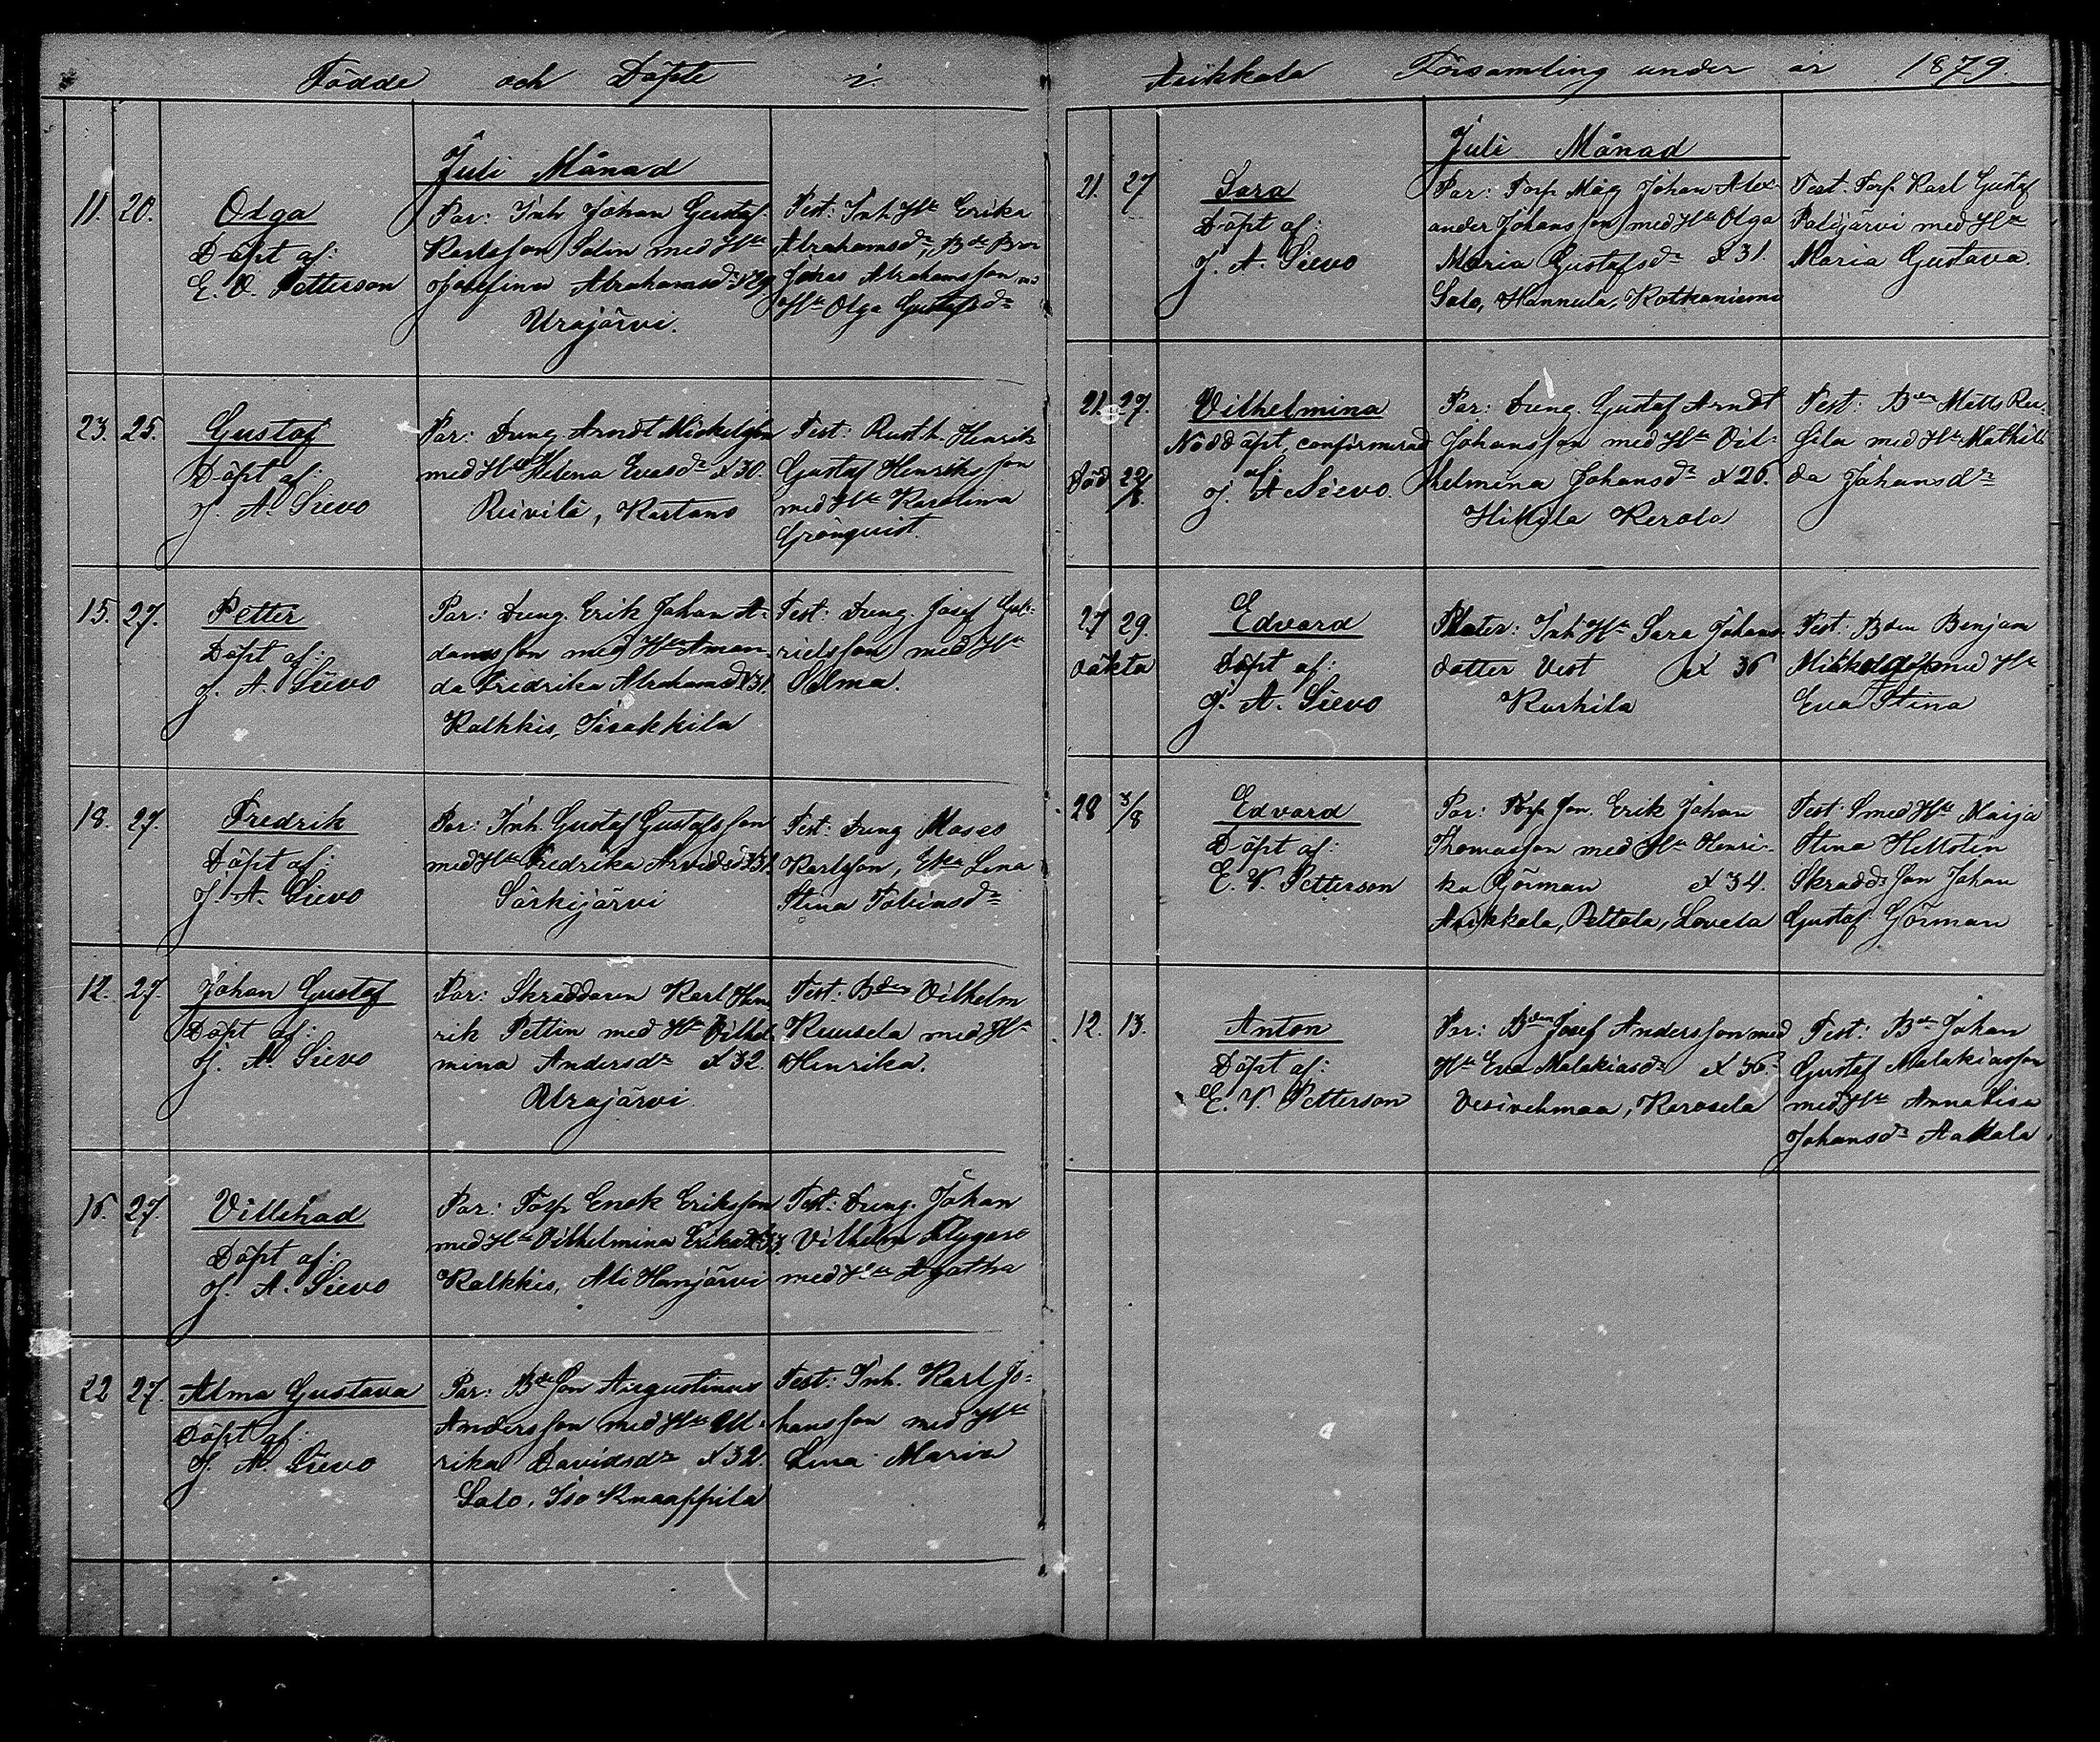 Födde och Döpte i
Juli Månad
11. 20. Olga
Döpt af:
E. V. Petterson
Par: Inh Johan Gustaf
Karlsson Salin med Hu
Josefina Abrahamsdr 29
Urajärvi.
Test: Inh Hu Erika
Abrahamsdr, Bde Bror
Jonas Abrahamsson md
Hu Olga Gustafsdr
23. 25. Gustaf
Döpt af:
J. A. Sievo
Par: Dräng Arndt Mickelsson
med Hu Helena Evasdr æt 30.
Reivilä, Kartano
Test: Rusth. Henrik
Gustaf Henriksson
med Hu Karolina
Grönquist.
15. 27. Petter
Döpt af:
J. A. Sievo
Par: Dräng. Erik Johan A-
damsson med Hu Aman-
da Fredrika Abrahamsd 31.
Kalkkis, Iisakkila
Test: Dräng. Josef Gab-
rielsson med Hu
Selma.
18. 27. Fredrik
Döpt af:
J. A. Sievo
Par: Inh. Gustaf Gustafsson
med Hu Fredrika Arvidsd 31.
Särkijärvi
Test: Dräng Moses
Karlsson, Eka Lena
Stina Tobiasdr
12. 27. Johan Gustaf
Döpt af:
J. A. Sievo
Par: Skräddaren Karl Hen
rik Pettin med Hu Vilhel
mina Andersdr æt 32.
Urajärvi
Test: Bden Vilhelm
Kuusela med Hu
Henrika.
16. 27. Villehad
Döpt af:
J. A. Sievo
Par: Torp Enok Eriksson
med Hu Vilhelmina Eriksd 33.
Kalkkis, Ali Hanjärvi
Test: Dräng. Johan
Vilhelm Flygare
med Hu Agatha
22 27. Alma Gustava
Döpt af:
J. A. Sievo
Par: Bde Son Augustinus
Andersson med Hu Ul-
rika Davidsdr æt 32.
Salo, Iso Knaappila
Test: Inh. Karl Jo-
hansson med Hu
Lena Maria
Asikkala Församling under år 1879.
Juli Månad
21. 27 Sara
Döpt af:
J. A. Sievo
Par: Torp Måg Johan Alex-
ander Johansson med Hu Olga
Maria Gustafsdr æt 31.
Salo, Hannula, Kotkaniemi
Test. Torp Karl Gustaf
Palojärvi med Hu
Maria Gustava.
21. 27. Vilhelmina
Nöddöpt, confirmerad
af:
J. A. Sievo.
Död 22/8.
Par: Dräng. Gustaf Arndt
Johansson med Hu Vil-
helmina Johansdr æt 26.
Hillilä Kerola
Test: Bden Matts Rei-
lila med Hu Mathil-
da Johansdr
27 29. Edvard
oäkta
Döpt af:
J. A. Sievo
Mater: Inh Hu Sara Johans-
dotter Vest æt 36
Kurhila
Test: Bden Benjam
Mikkola med Hu
Eva Stina
28 3/8 Edvard
Döpt af:
E. V. Petterson
Par: Torp Son. Erik Johan
Thomasson med Hu Henri-
ka Görman æt 34.
Asikkala, Peltola, Lovela
Test: Smed Hu Maija
Stina Hellsten
Skradd: Son Johan
Gustaf Görman
12. 13. Anton
Döpt af:
E. V. Petterson
Par: Bden Josef Andersson med
Hu Eva Malakiasdr æt 36.
Vesivehmaa, Karosela
Test: Bde Johan
Gustaf Malakiasson
med Hu Anna Lisa
Johansdr Aakala